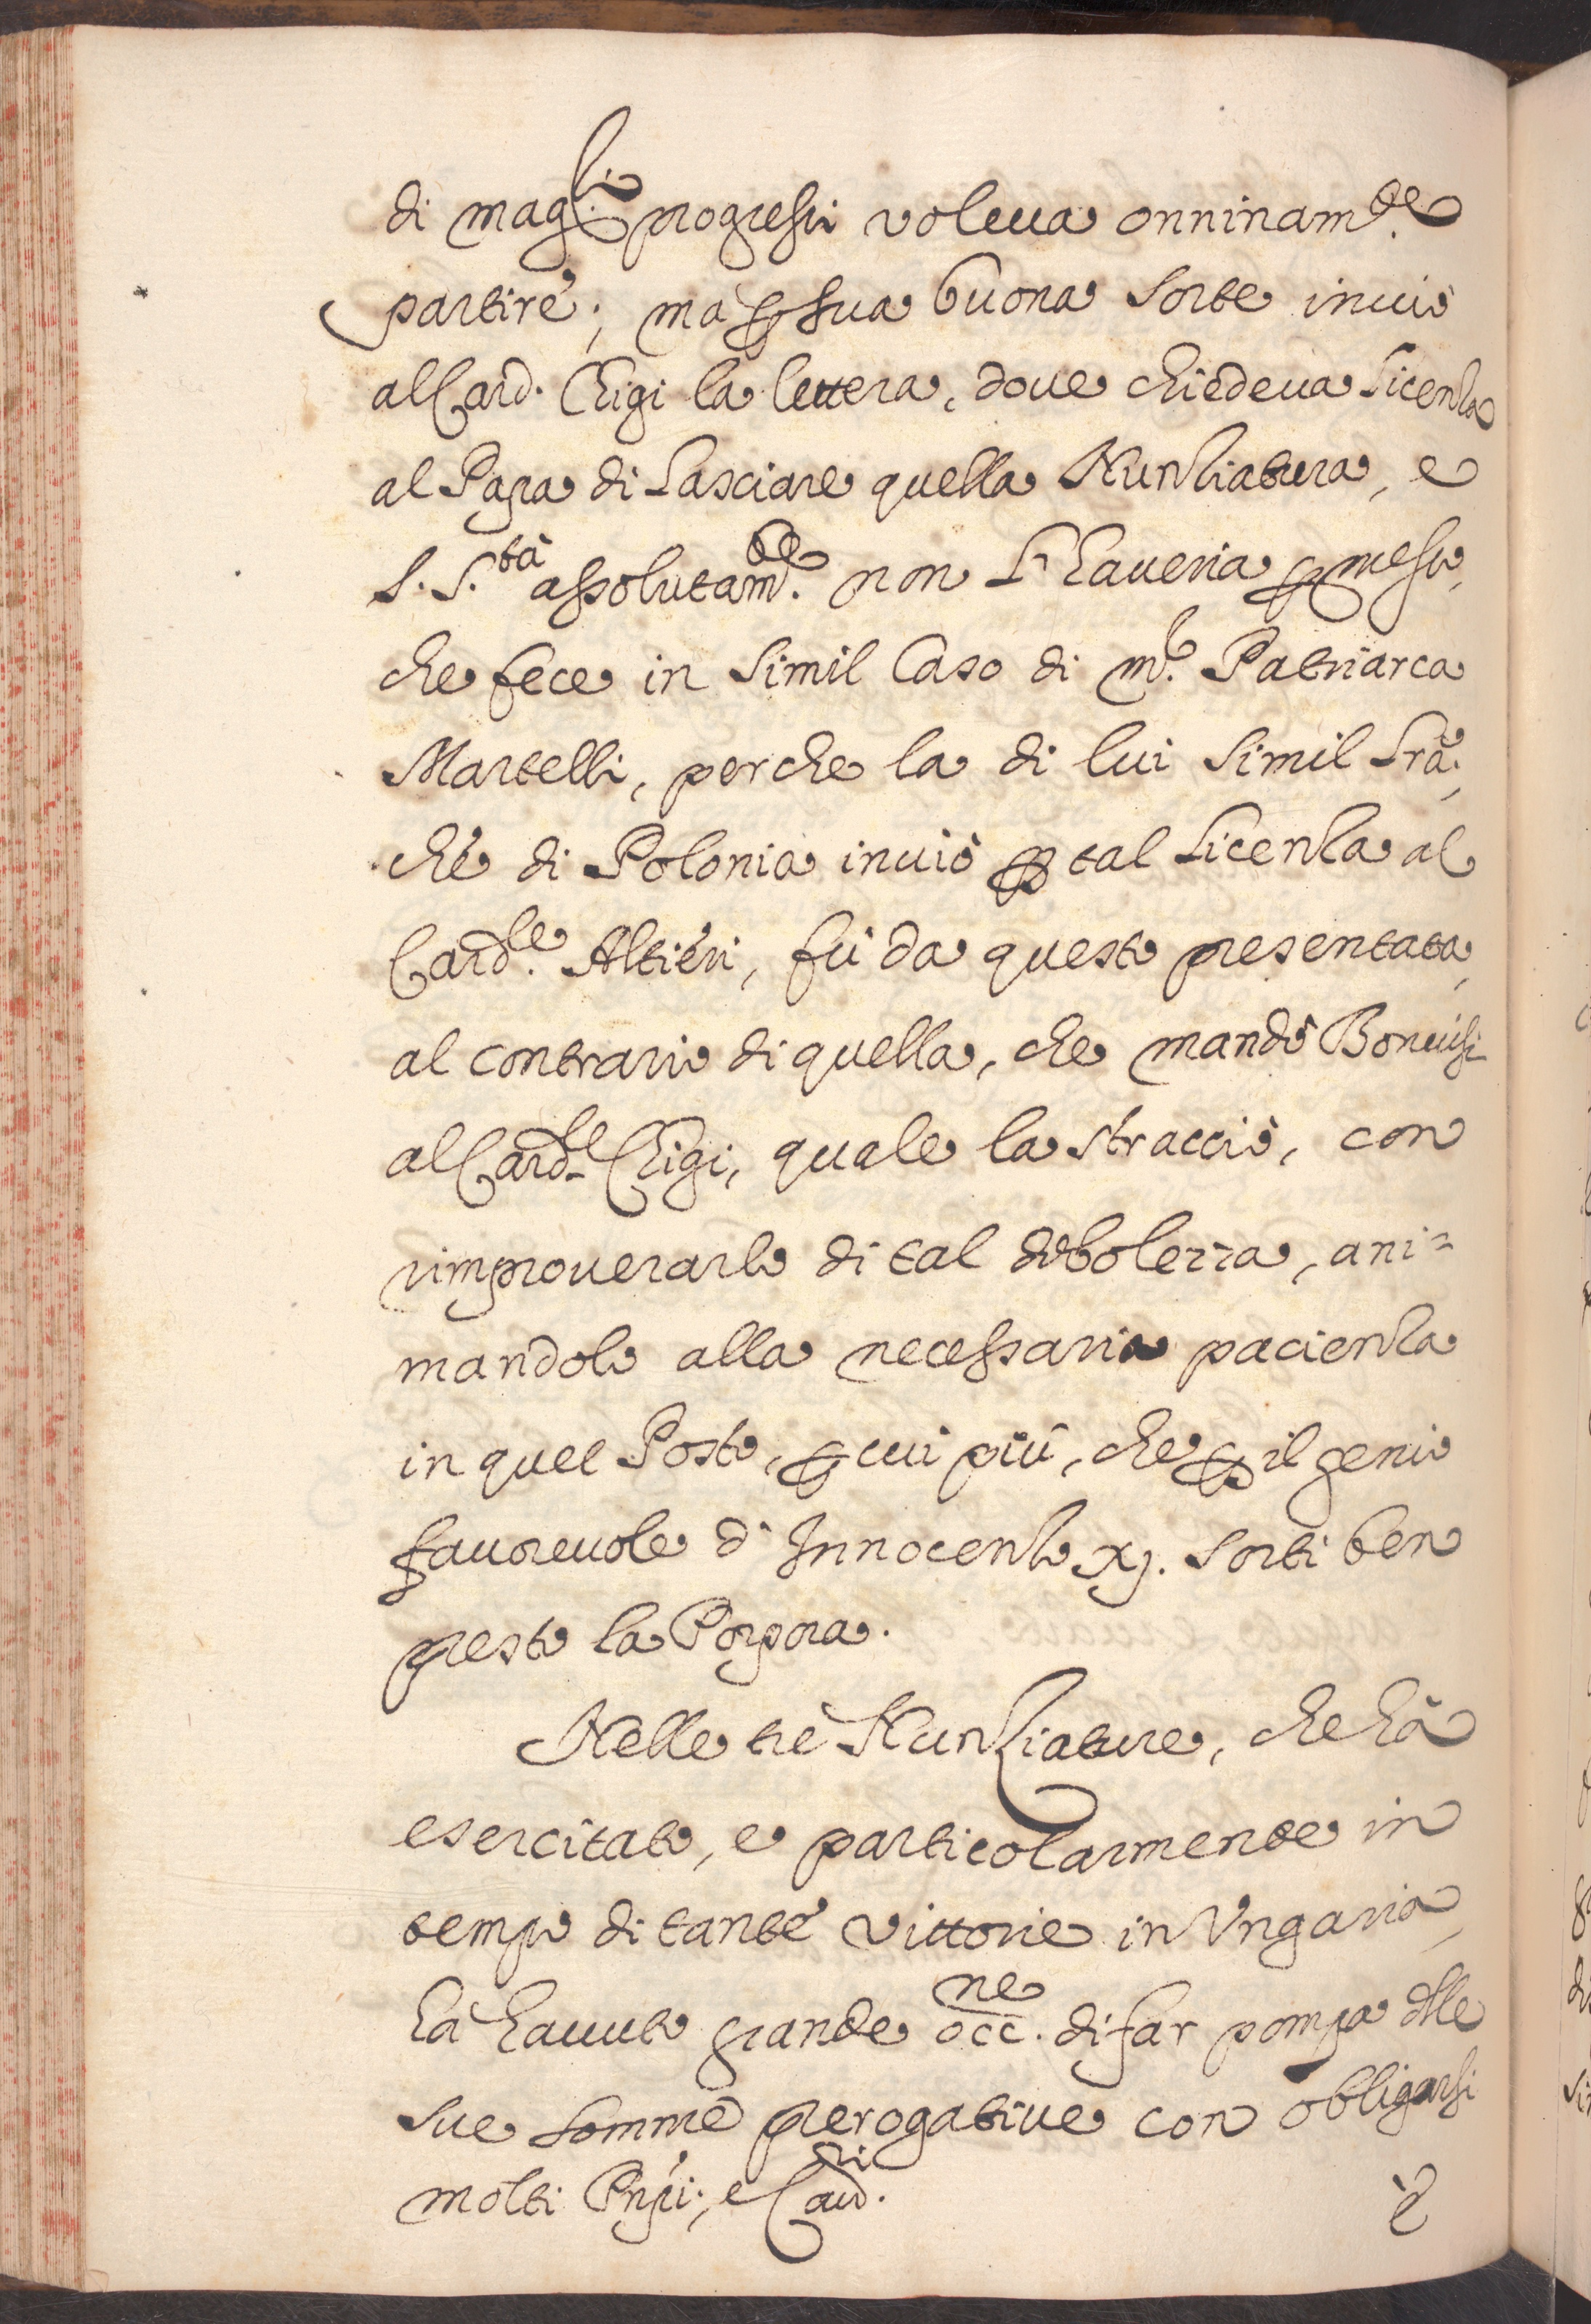 di mag.ri progressi voleua onninam.te
partire; mà ꝑ sua buona sorte inuiò
al Card. Chigi la lettera, doue chiedeua licenza
al Papa di lasciare quella Nunziatura, e
S. S.tà assolutam.te non l'haueria ꝑmesso,
che fece in simil caso di m.r Patriarca
Martelli, perche la di lui simil lrã,
chè di Polonia inuiò ꝑ tal licenza al
Card.le Altieri, fù da questo presentata,
al contrario di quella, che mandò Bonuisi
al Card.le Chigi, quale la stracciò, con
rimprouerarlo di tal debolezza, ani=
mandolo alla necessaria pacienza
in quel Posto, ꝑ cui più, che ꝑ il genio
fauoreuole d'Innocenzo xj. sortì ben
presto la Porpora.
Nelle trè Nunziature, che hà
esercitato, e particolarmente in
tempo di tante vittorie in Vngaria,
hà hauuto grande occ.ne di far pompa dlle
sue somme prerogatiue con obligarsi
molti Pnpi; e Card.li
è